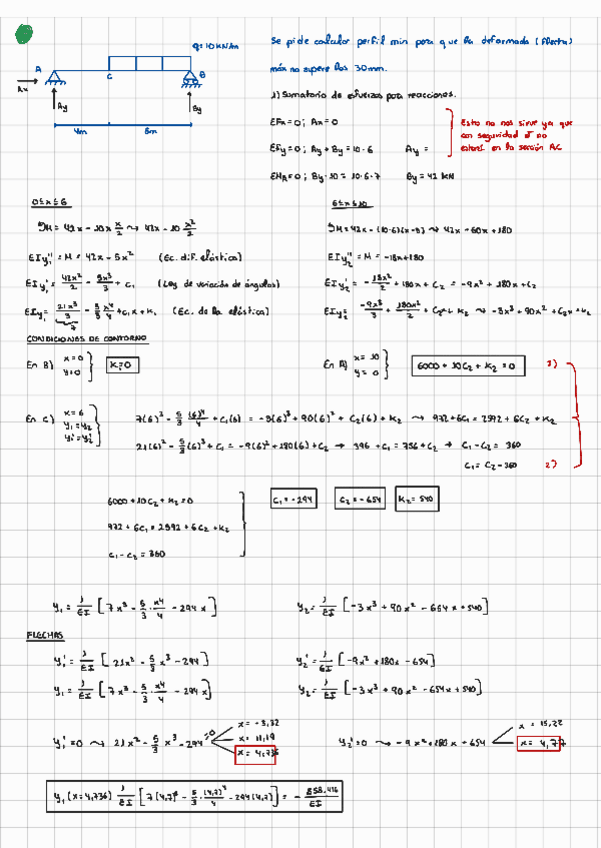 q=10 kN/m
A
C
B
Ax
Ay
By
4m
6m
Se pide calcular perfil min para que la deformada (flecha)
máx no supere los 30mm.
1) Sumatorio de esfuerzos para reacciones.
ΣFx=0; Ax=0
ΣFy=0; Ay+By=10·6
Ay =
ΣMA=0; By·10 = 10·6·7
By = 42 kN
Esto no nos sirve ya que
con seguridad
no
estará en la sección AC
0≤x≤6
M = 42x - 10x x/2 ⤳ 42x - 10 x²/2
EIy₁'' = M = 42x - 5x² (Ec. dif. elástica)
EIy₁' = 42x²/2 - 5x³/3 + C₁ (Ley de variación de ángulos)
EIy₁ = 21x³/3 - 5/3 x⁴/4 + C₁x + K₁ (Ec. de la elástica)
7
6≤x≤10
M = 42x - (10·6)(x-3) ⤳ 42x - 60x + 180
EIy₂'' = M = -18x+180
EIy₂' = -18x²/2 + 180x + C₂ = -9x² + 180x + C₂
EIy₂ = -9x³/3 + 180x²/2 + C₂x + K₂ ⤳ -3x³ + 90x² + C₂x + K₂
CONDICIONES DE CONTORNO
En B) x=0
y=0
K₁=0
En A) x=10
y=0
6000 + 10C₂ + K₂ = 0
1)
En C) x=6
y₁=y₂
y₁'=y₂'
7(6)³ - 5/3 (6)⁴/4 + C₁(6) = -3(6)³ + 90(6)² + C₂(6) + K₂ ⤳ 972+6C₁ = 2592 + 6C₂ + K₂
21(6)² - 5/3(6)³ + C₁ = -9(6)² + 180(6) + C₂ → 396 + C₁ = 756 + C₂ → C₁ - C₂ = 360
C₁ = C₂ - 360
2)
6000 + 10C₂ + K₂ = 0
972 + 6C₁ = 2592 + 6C₂ + K₂
C₁ - C₂ = 360
C₁ = -294
C₂ = -654
K₂ = 540
y₁ = 1/EI [7x³ - 5/3 · x⁴/4 - 294x]
y₂ = 1/EI [-3x³ + 90x² - 654x + 540]
FLECHAS
y₁' = 1/EI [21x² - 5/3 x³ - 294]
y₂' = 1/EI [-9x² + 180x - 654]
y₁ = 1/EI [7x³ - 5/3 · x⁴/4 - 294x]
y₂ = 1/EI [-3x³ + 90x² - 654x + 540]
y₁'=0 ⤳ 21x² - 5/3 x³ - 294 =0
x = -3,32
x = 11,19
x = 4,736
y₂'=0 ⤳ -9x² + 180x - 654
x = 15,22
x = 4,77
y₁(x=4,736) 1/EI [7(4,7)³ - 5/3 · (4,7)⁴/4 - 294(4,7)] = - 858,416/EI